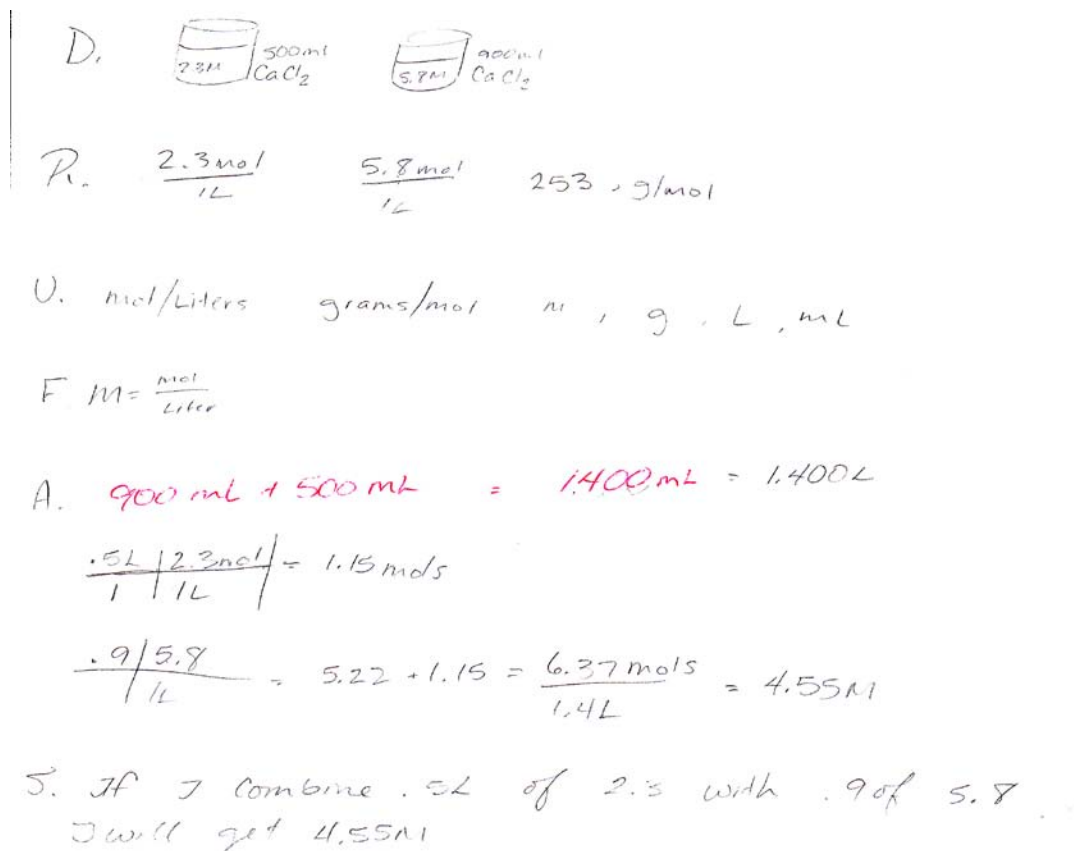 D. 2.3M 500ml CaCl2 5.8M 900ml CaCl2
P. 2.3 mol / 1L 5.8 mol / 1L 253. g/mol
U. mol/Liters grams/mol M, g, L, mL
F M = mol / Liter
A. 900 mL + 500 mL = 1400 mL = 1.400L
.5L | 2.3mol / 1 | 1L = 1.15 mols
.9 | 5.8 / | 1L = 5.22 + 1.15 = 6.37 mols / 1.4L = 4.55M
S. If I combine .5L of 2.3 with .9 of 5.8
I will get 4.55M